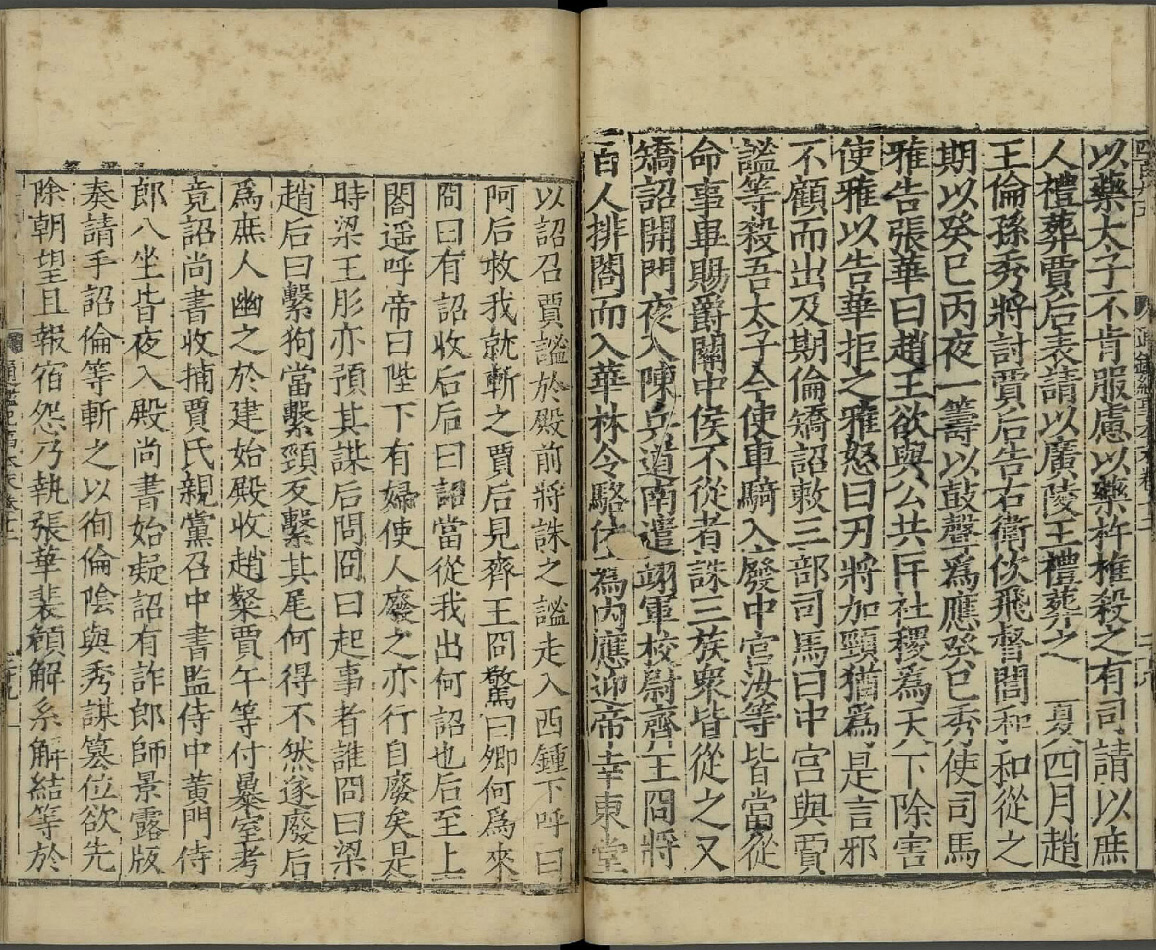 以藥太子不肯服慮以藥杵椎殺之有司請以庶
人禮葬賈后表請以廣陵王禮葬之　夏四月趙
王倫孫秀將討賈后告右衛佽飛督閭和和從之
期以癸巳丙夜一籌以鼓聲爲應癸巳秀使司馬
雅告張華曰趙王欲與公共匡社稷爲天下除害
使雅以告華拒之雅怒曰刃將加頸猶爲是言邪
不顧而出及期倫矯詔敕三部司馬曰中宮與賈
謐等殺吾太子今使車騎入廢中宮汝等皆當從
命事畢賜爵關中侯不從者誅三族衆皆從之又
矯詔開門夜入陳兵道南遣翊軍校尉齊王冏將
百人排閤而入華林令駱休爲内應迎帝幸東堂
以詔召賈謐於殿前將誅之謐走入西鍾下呼曰
阿后救我就斬之賈后見齊王冏驚曰卿何爲來
冏曰有詔收后后曰詔當從我出何詔也后至上
閤遥呼帝曰陛下有婦使人廢之亦行自廢矣是
時梁王肜亦預其謀后問冏曰起事者誰冏曰梁
趙后曰繫狗當繫頸反繫其尾何得不然遂廢后
爲庶人幽之於建始殿收趙粲賈午等付暴室考
竟詔尚書收捕賈氏親黨召中書監侍中黄門侍
郎八坐皆夜入殿尚書始疑詔有詐郎師景露版
奏請手詔倫等斬之以徇倫陰與秀謀篡位欲先
除朝望且報宿怨乃執張華裴頠解系解結等於